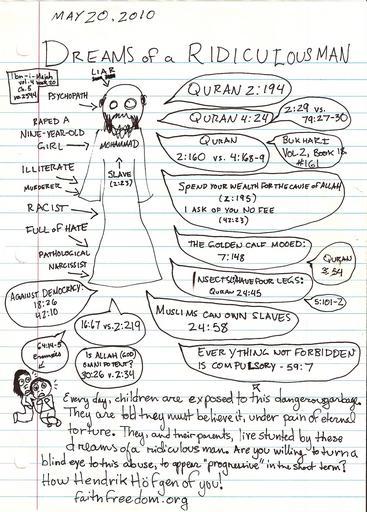 MAY 20, 2010
DREAMS of a RIDICULOUS MAN
Ibn-i-Majah
vol. 4 book 20
Ch. 5
no. 2544
LIAR
PSYCHOPATH
RAPED A
NINE-YEAR-OLD
GIRL
ILLITERATE
MURDERER
RACIST
FULL of HATE
PATHOLOGICAL
NARCISSIST
MOHAMMAD
SLAVE
(2:23)
QURAN 2:194
QURAN 4:24
2:29 vs.
79:27-30
QURAN
2:160 vs. 4:168-9
BUKHARI
VOL 2, BOOK 18
#161
SPEND YOUR WEALTH FOR THE CAUSE OF ALLAH
(2:195)
I ASK OF YOU NO FEE
(42:23)
THE GOLDEN CALF MOOED:
7:148
QURAN
3:54
INSECTS HAVE FOUR LEGS:
QURAN 24:45
5:101-2
MUSLIMS CAN OWN SLAVES
24:58
EVERYTHING NOT FORBIDDEN
IS COMPULSORY - 59:7
AGAINST DEMOCRACY:
18:26
42:10
16:67 vs. 2:219
64:14-5
Enemies
IS ALLAH (GOD)
OMNIPOTENT?
30:26 v. 2:34
Every day, children are exposed to this dangerous garbage.
They are told they must believe it, under pain of eternal
torture. They, and their parents, live stunted by these
dreams of a ridiculous man. Are you willing to turn a
blind eye to this abuse, to appear "progressive" in the short term?
How Hendrik Höfgen of you!
faithfreedom.org